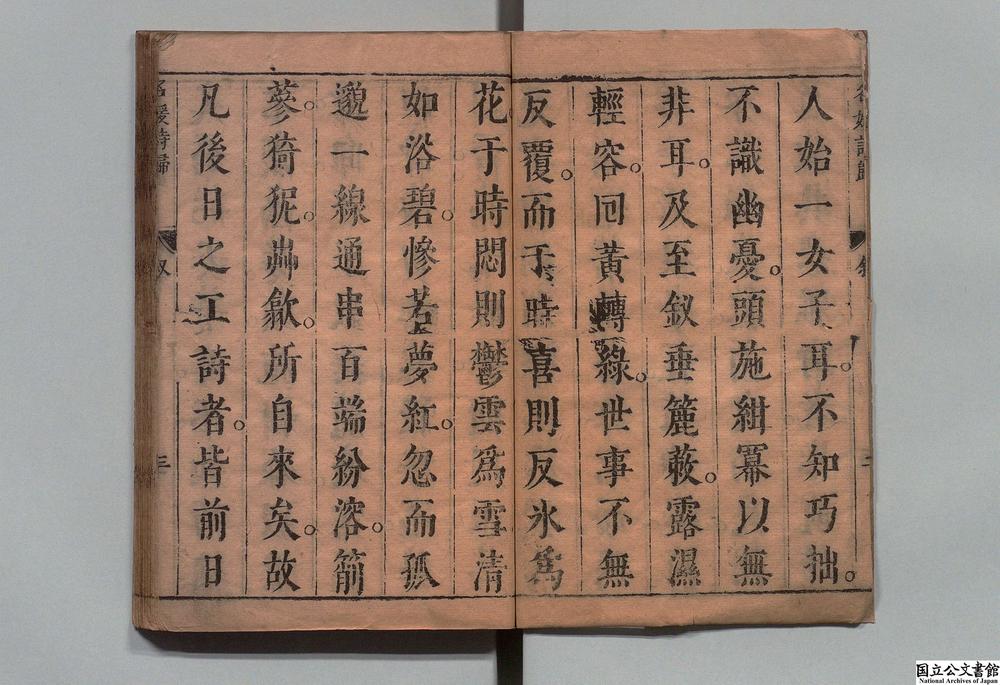 人始一女子耳。不知巧拙。
不識幽憂。頭施紺冪以無
非耳。及至釵垂簏蔌。露濕
輕容。回黃轉綠。世事不無
反覆。而于時喜則反氷爲
花于時悶則鬱雲爲雪清
如浴碧。慘若夢紅。忽而孤
邈一線通串百端紛溶。箾
蔘。猗狔。歘。所自來矣。故
凡後日之工詩者。皆前日
名媛詩歸
叙
三
国立公文書館
National Archives of Japan